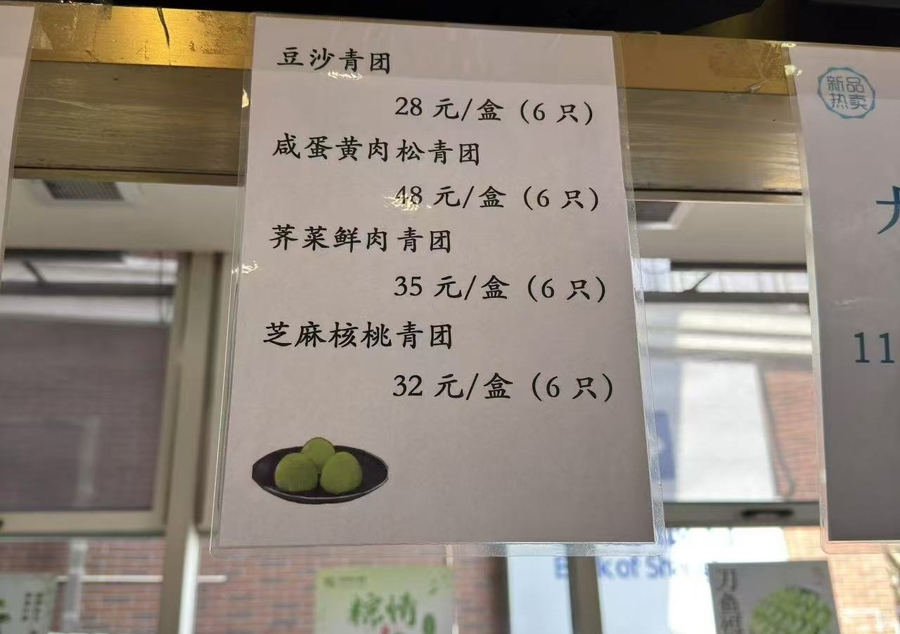 豆沙青团
28 元/盒（6 只）
咸蛋黄肉松青团
48 元/盒（6 只）
荠菜鲜肉青团
35 元/盒（6 只）
芝麻核桃青团
32 元/盒（6 只）
新品
热卖
11
粽情
Bank of Sh
刀鱼